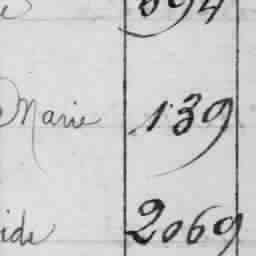 894
Marie 139
ide 2069